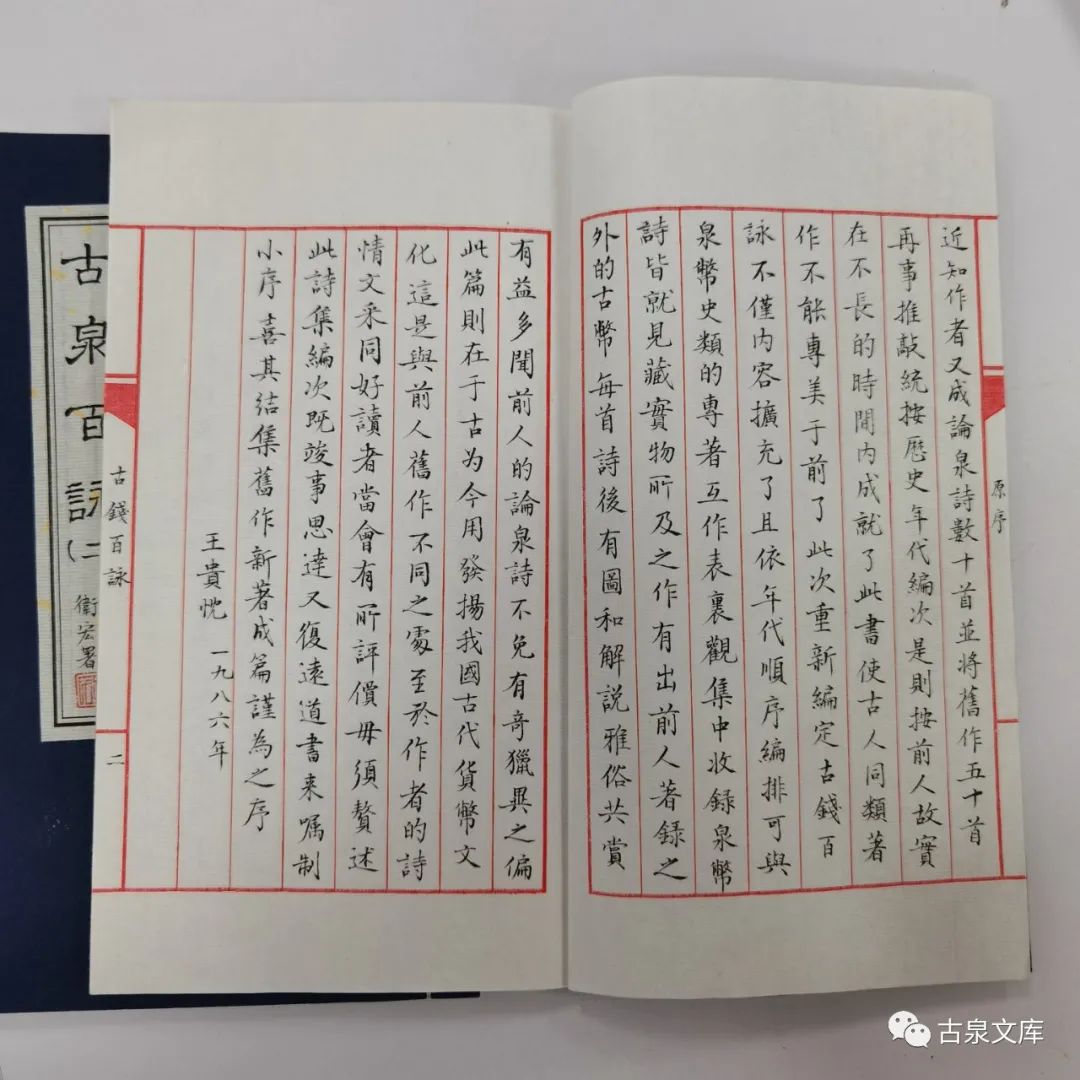 原序
近知作者又成論泉詩數十首並將舊作五十首
再事推敲統按歷史年代編次是則按前人故實
在不長的時間内成就了此書使古人同類著
作不能專美于前了此次重新編定古錢百
詠不僅内容擴充了且依年代順序編排可與
泉幣史類的專著互作表裏觀集中收録泉幣
詩皆就見藏實物所及之作有出前人著録之
外的古幣每首詩後有圖和解説雅俗共賞
有益多聞前人的論泉詩不免有奇獵異之偏
此篇則在于古为今用發揚我國古代貨幣文
化這是與前人舊作不同之處至於作者的詩
情文采同好讀者當會有所評價毋須贅述
此詩集編次既竣事思達又復遠道書来嘱制
小序喜其结集舊作新著成篇謹為之序
王貴忱 一九八六年
古錢百詠
二
古泉百詠(二
衛宏署
古泉文库